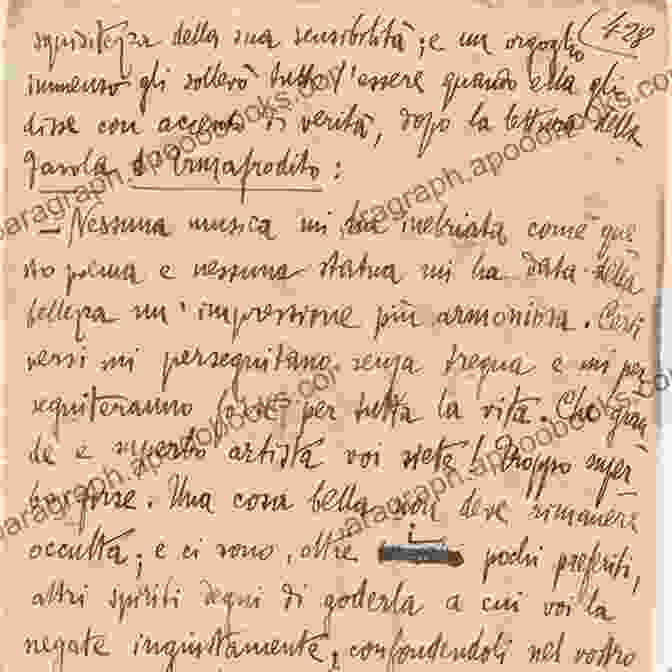 428
squisitezza della sua sensibilità; e un orgoglio
immenso gli sollevò tutto l'essere quando ella gli
disse con accento di verità, dopo la lettura della
Favola d'Ermafrodito:
— Nessuna musica mi ha inebriata come que-
sto poema e nessuna statua mi ha data della
bellezza un' impressione più armoniosa. Certi
versi mi perseguitano senza tregua e mi per
seguiteranno forse per tutta la vita. Che gran
de e superbo artista voi siete! Troppo super-
bo forse. Una cosa bella non deve rimanere
occulta; e ci sono, oltre i pochi preferiti,
altri spiriti degni di goderla a cui voi la
negate ingiustamente, confondendoli nel vostro
paragraph.apooobooks.com